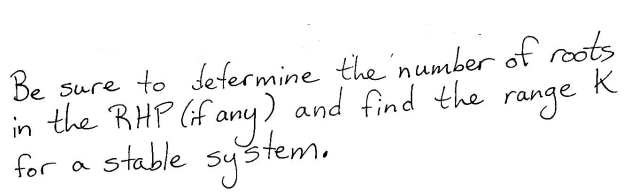 Be sure to determine the number of roots
in the RHP (if any) and find the range K
for a stable system.